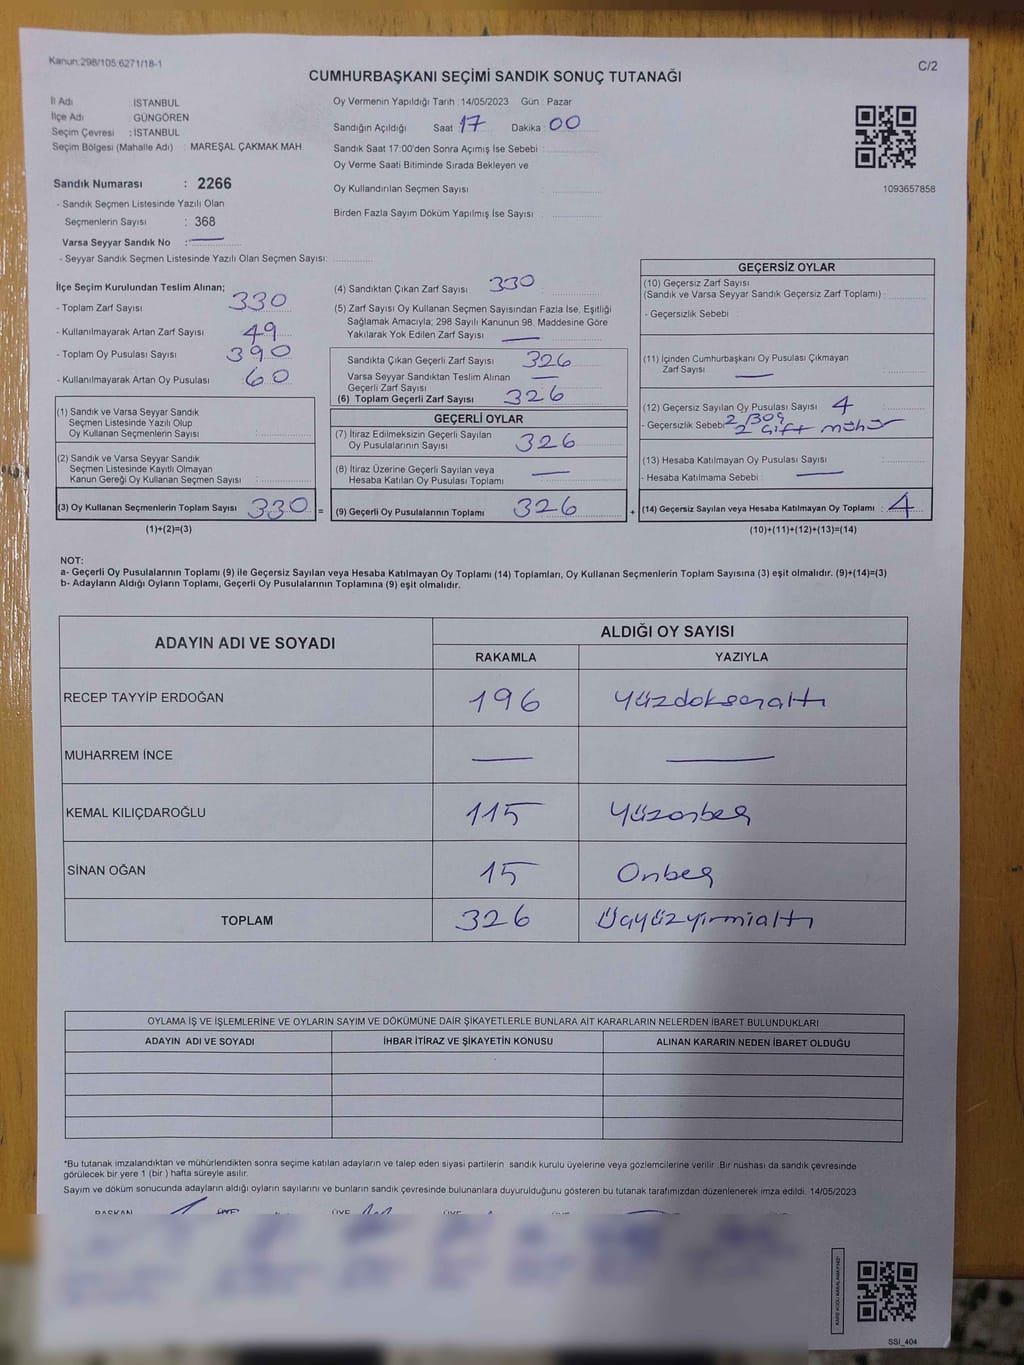 Kanun:298/105:6271/18-1
C/2
CUMHURBAŞKANI SEÇİMİ SANDIK SONUÇ TUTANAĞI
İl Adı : İSTANBUL
İlçe Adı : GÜNGÖREN
Seçim Çevresi : İSTANBUL
Seçim Bölgesi (Mahalle Adı) : MAREŞAL ÇAKMAK MAH.
Sandık Numarası : 2266
- Sandık Seçmen Listesinde Yazılı Olan
Seçmenlerin Sayısı : 368
Varsa Seyyar Sandık No : —
- Seyyar Sandık Seçmen Listesinde Yazılı Olan Seçmen Sayısı:
Oy Vermenin Yapıldığı Tarih : 14/05/2023 Gün : Pazar
Sandığın Açıldığı Saat 17 Dakika : 00
Sandık Saat 17:00'den Sonra Açımış İse Sebebi :
Oy Verme Saati Bitiminde Sırada Bekleyen ve
Oy Kullandırılan Seçmen Sayısı :
Birden Fazla Sayım Döküm Yapılmış İse Sayısı :
1093657858
İlçe Seçim Kurulundan Teslim Alınan;
- Toplam Zarf Sayısı : 330
- Kullanılmayarak Artan Zarf Sayısı : 49
- Toplam Oy Pusulası Sayısı : 390
- Kullanılmayarak Artan Oy Pusulası : 60
(1) Sandık ve Varsa Seyyar Sandık
Seçmen Listesinde Yazılı Olup
Oy Kullanan Seçmenlerin Sayısı :
(2) Sandık ve Varsa Seyyar Sandık
Seçmen Listesinde Kayıtlı Olmayan
Kanun Gereği Oy Kullanan Seçmen Sayısı :
(3) Oy Kullanan Seçmenlerin Toplam Sayısı : 330 =
(1)+(2)=(3)
(4) Sandıktan Çıkan Zarf Sayısı : 330
(5) Zarf Sayısı Oy Kullanan Seçmen Sayısından Fazla İse, Eşitliği
Sağlamak Amacıyla; 298 Sayılı Kanunun 98. Maddesine Göre
Yakılarak Yok Edilen Zarf Sayısı : —
Sandıkta Çıkan Geçerli Zarf Sayısı : 326
Varsa Seyyar Sandıktan Teslim Alınan —
Geçerli Zarf Sayısı
(6) Toplam Geçerli Zarf Sayısı : 326
GEÇERLİ OYLAR
(7) İtiraz Edilmeksizin Geçerli Sayılan
Oy Pusulalarının Sayısı : 326
(8) İtiraz Üzerine Geçerli Sayılan veya —
Hesaba Katılan Oy Pusulası Toplamı :
(9) Geçerli Oy Pusulalarının Toplamı : 326 +
GEÇERSİZ OYLAR
(10) Geçersiz Zarf Sayısı
(Sandık ve Varsa Seyyar Sandık Geçersiz Zarf Toplamı) :
- Geçersizlik Sebebi :
(11) İçinden Cumhurbaşkanı Oy Pusulası Çıkmayan
Zarf Sayısı : —
(12) Geçersiz Sayılan Oy Pusulası Sayısı : 4
- Geçersizlik Sebebi 2 Boş
2 Çift mühür
(13) Hesaba Katılmayan Oy Pusulası Sayısı :
- Hesaba Katılmama Sebebi : —
(14) Geçersiz Sayılan veya Hesaba Katılmayan Oy Toplamı : 4
(10)+(11)+(12)+(13)=(14)
NOT:
a- Geçerli Oy Pusulalarının Toplamı (9) ile Geçersiz Sayılan veya Hesaba Katılmayan Oy Toplamı (14) Toplamları, Oy Kullanan Seçmenlerin Toplam Sayısına (3) eşit olmalıdır. (9)+(14)=(3)
b- Adayların Aldığı Oyların Toplamı, Geçerli Oy Pusulalarının Toplamına (9) eşit olmalıdır.
ADAYIN ADI VE SOYADI
ALDIĞI OY SAYISI
RAKAMLA YAZIYLA
RECEP TAYYİP ERDOĞAN 196 Yüzdoksanaltı
MUHARREM İNCE — —
KEMAL KILIÇDAROĞLU 115 Yüzonbeş
SİNAN OĞAN 15 Onbeş
TOPLAM 326 Üçyüzyirmialtı
OYLAMA İŞ VE İŞLEMLERİNE VE OYLARIN SAYIM VE DÖKÜMÜNE DAİR ŞİKAYETLERLE BUNLARA AİT KARARLARIN NELERDEN İBARET BULUNDUKLARI
ADAYIN ADI VE SOYADI İHBAR İTİRAZ VE ŞİKAYETİN KONUSU ALINAN KARARIN NEDEN İBARET OLDUĞU
*Bu tutanak imzalandıktan ve mühürlendikten sonra seçime katılan adayların ve talep eden siyasi partilerin sandık kurulu üyelerine veya gözlemcilerine verilir. Bir nüshası da sandık çevresinde
görülecek bir yere 1 (bir ) hafta süreyle asılır.
Sayım ve döküm sonucunda adayların aldığı oyların sayılarını ve bunların sandık çevresinde bulunanlara duyurulduğunu gösteren bu tutanak tarafımızdan düzenlenerek imza edildi. 14/05/2023
BAŞKAN ÜYE ÜYE ÜYE
SSI_404